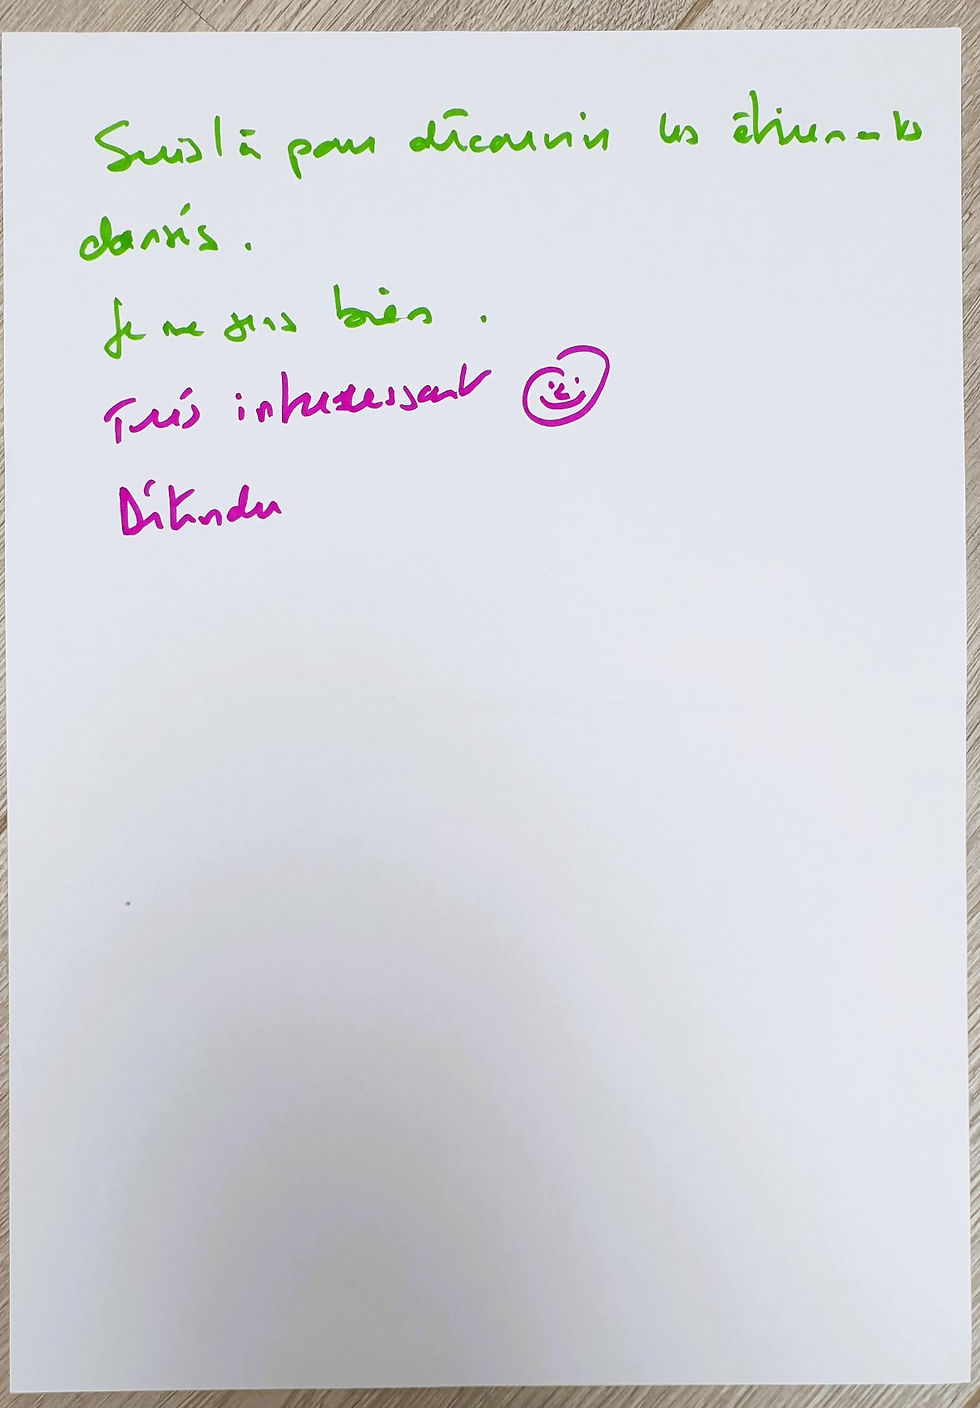 Suis là pour découvrir les étirements
dansés.
Je me sens bien.
Très interessant
Détendu